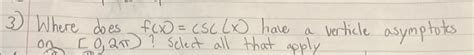 3) Where does f(x) = csc(x) have a verticle asymptots
on [0, 2π)? Select all that apply